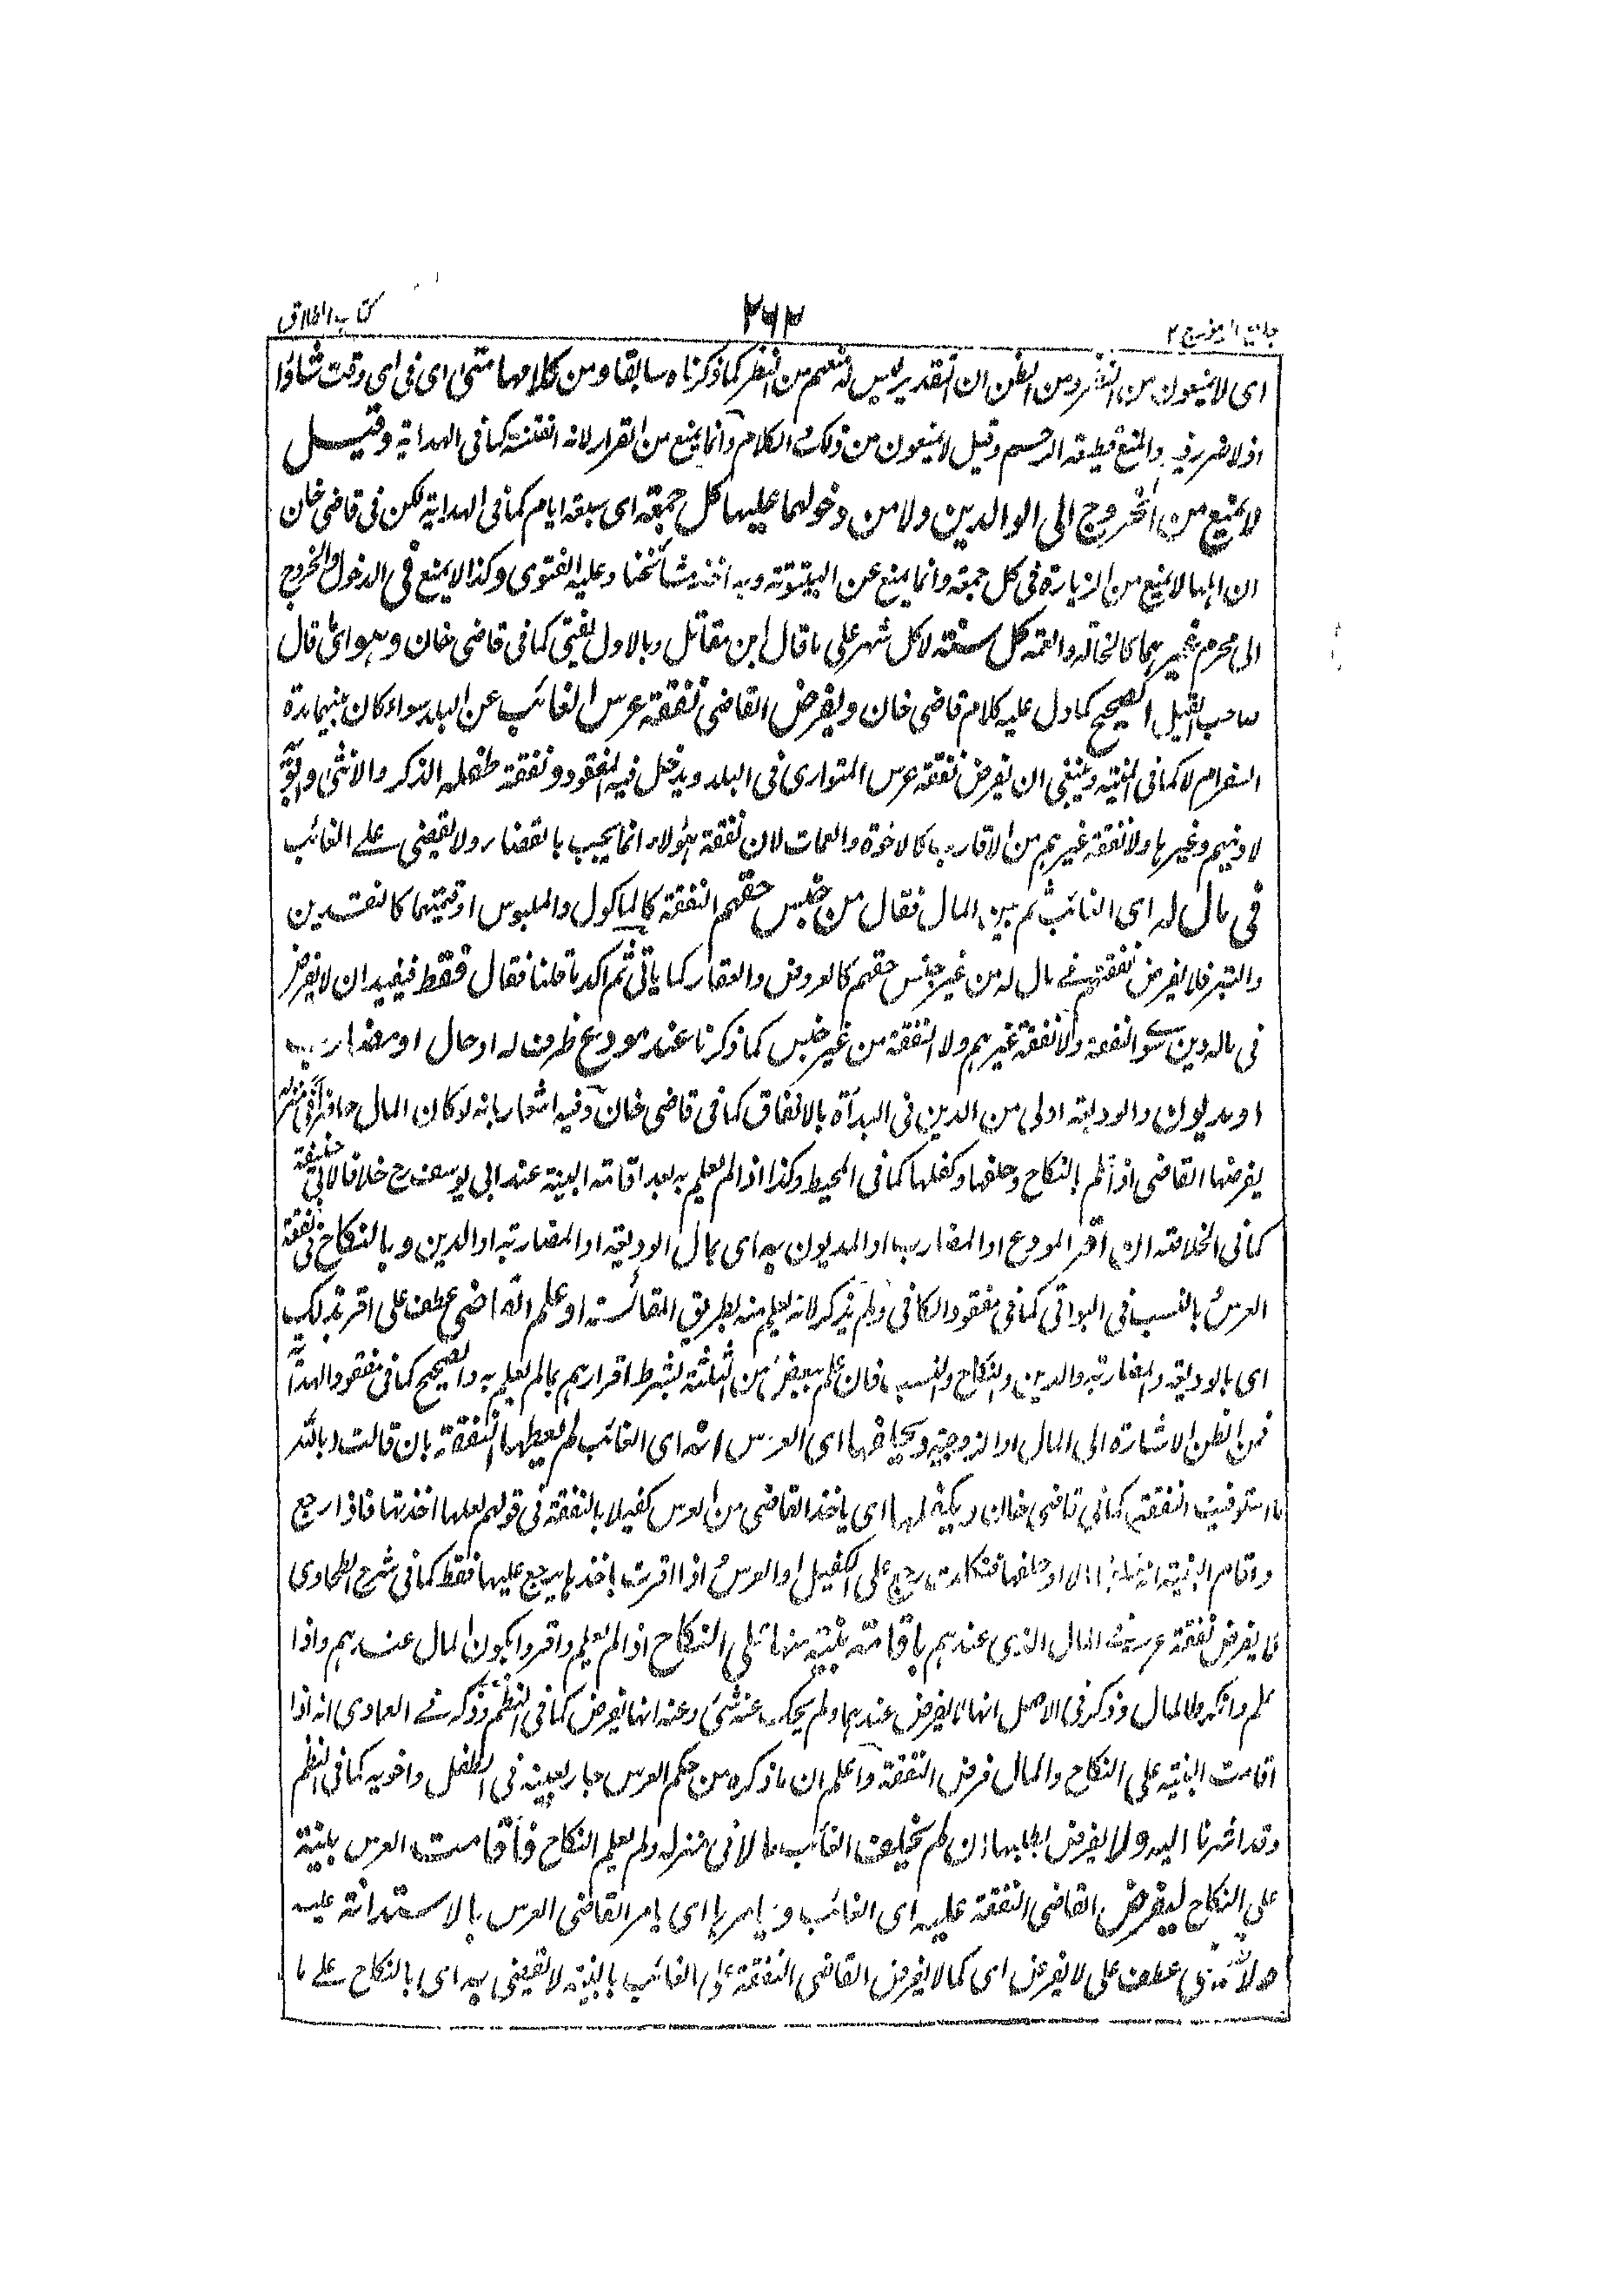 كتاب الطلاق ٢٦٢ جامع الرموز ج ٢
اى لا يمنعون من النظر ومن الظن ان التقدير ليس له منعهم من النظر كما ذكرناه سابقا ومن كلامها متى اى فى اى وقت شاؤا
اذ لا ضرر فيه والمنع قطيعة الرحم وقيل لا يمنعون من ذلك الكلام وانما يمنع من القرار لانه الفتنة كما فى الهداية وقيل
لا يمنع من الخروج الى الوالدين ولا من دخولهما عليها كل جمعة اى سبعة ايام كما فى الهداية لكن فى قاضى خان
ان اهلها لا يمنع من الزيارة فى كل جمعة وانما يمنع عن البيتوتة وبه اخذ مشائخنا وعليه الفتوى وكذا لا يمنع فى الدخول والخروج
الى محرم غيرهما كالخالة والعمة كل سنة لا كل شهر على ما قال ابن مقاتل وبالاول يفتى كما فى قاضى خان وهو انما قال
صاحب القيل الصحيح كما دل عليه كلام قاضى خان ويفرض القاضى نفقة عرس الغائب عن البلد سواء كان بينهما مدة
السفر ام لا كما فى المنية وينبغى ان يفرض نفقة عرس المتوارى فى البلد ويدخل فيه المفقود ونفقة طفله الذكر والانثى وابويه
لا ذنبهم وغيرها ولا نفقة غيرهم من الاقارب كالاخوة والعمات لان نفقة هؤلاء انما يجب بالقضاء ولا يقضى على الغائب
فى مال له اى الغائب ثم بين المال فقال من جنس حقهم النفقة كالماكول والملبوس او قيمتهما كالنقدين
والتبر فلا يفرض نفقتهم فى مال له من غير جنس حقهم كالعروض والعقار كما ياتى ثم اكد ما قلنا فقال فقط فيفيد ان لا يفرض
فى ماله دين سوى النفقة ولا نفقة غيرهم ولا النفقة من غير جنس كما ذكرنا عند مودع ظرف له او حال او مضارب
او مديون والوديعة اولى من الدين فى البدأة بالانفاق كما فى قاضى خان وفيه اشعار بانه لو كان المال حاضرا فى منزله
يفرضها القاضى اذا علم بالنكاح وحلفها وكفلها كما فى المحيط وكذا اذا لم يعلم به بعد اقامة البينة عند ابى يوسف رح خلافا لابى حنيفة
كما فى الخلاصة ان اقر المودع او المضارب او المديون به اى بمال الوديعة او المضاربة او الدين وبالنكاح فى نفقة
العرس بالنسب فى البواقى كما فى مفقود الكافى ولم يذكر لانه يعلم منه بطريق المقائسة او علم القاضى عطف على اقر بذلك
اى بالوديعة والمضاربة والدين والنكاح والنسب فان علم ببعض من الثلثة بشرط اقرارهم بما لم يعلم به والصحيح كما فى مفقود الهداية
فمن الظن الاشارة الى المال او الزوجية ويحلفها اى العرس انه اى الغائب لم يعطها النفقة بان قالت وبالله
ما استوفيت النفقة كما فى قاضى خان ويكفلها اى ياخذ القاضى من العرس كفيلا بالنفقة فى قولهم لعلها اخذتها فاذا رجع
واقام البينة او حلفها فنكلت رجع على الكفيل او العرس اذا اقرت باخذها يرجع عليها فقط كما فى شرح الطحاوى
لا يفرض نفقة عرسه فى المال الذى عندهم باقامة بينة منها على النكاح اذا لم يعلم واقروا بكون المال عندهم واذا
علم وانكروا المال وذكر فى الاصل انها لا يفرض عندهما ولم يحك عنه شئ وعنه انها يفرض كما فى النظم وذكر فى العمادى انه اذا
اقامت البينة على النكاح والمال فرض النفقة واعلم ان ما ذكره من حكم العرس جار بعينه فى الطفل واخويه كما فى النظم
وقد اشرنا اليه ولا يفرض بطلبها ان لم يخلف الغائب مالا فى منزله ولم يعلم النكاح فاقامت العرس بينة
على النكاح ليفرض القاضى النفقة عليه اى الغائب ويامرها اى يامر القاضى العرس بالاستدانة عليه
ولا يقضى عطف على لا يفرض اى كما لا يفرض القاضى النفقة على الغائب بالبينة لا يقضى به اى بالنكاح على ما